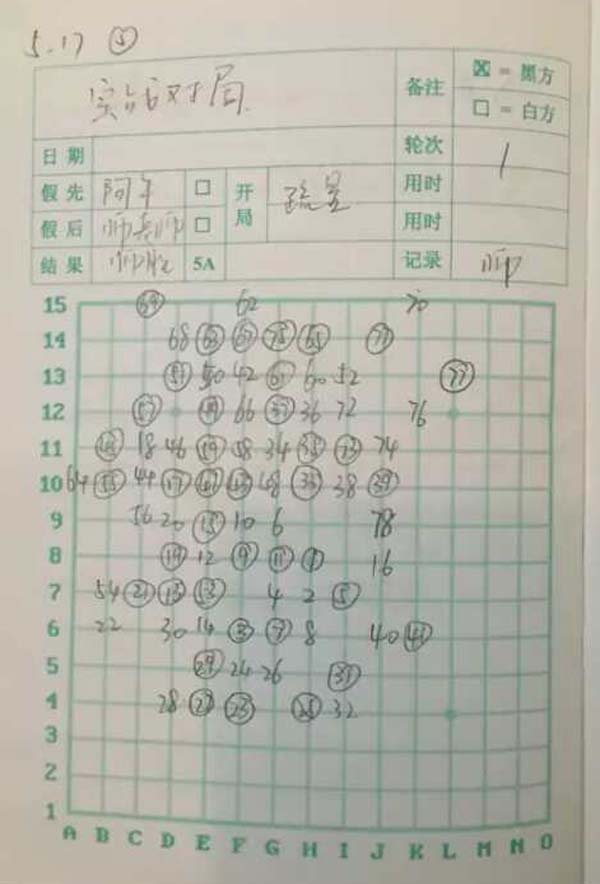 5.17 ⑤
实战对局 备注 ☒ = 黑方
□ = 白方
日期 轮次 1
假先 □ 开局 疏星 用时
假后 □ 用时
结果 5A 记录 帅
15 62 70
14 68 63 65 71
13 50 42 61 60 52 77
12 57 66 37 36 72 76
11 18 46 59 58 34 35 73 74
10 64 55 44 17 48 33 38 39
9 56 20 15 10 6 78
8 19 12 9 11 1 16
7 54 21 13 53 4 2 5
6 22 30 14 3 7 8 40 41
5 29 24 26 31
4 28 27 23 25 32
3
2
1
A B C D E F G H I J K L M N O